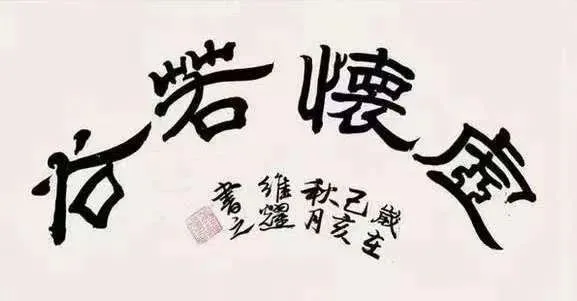 虛懷若谷
歲在
己亥
秋月
維耀
書之